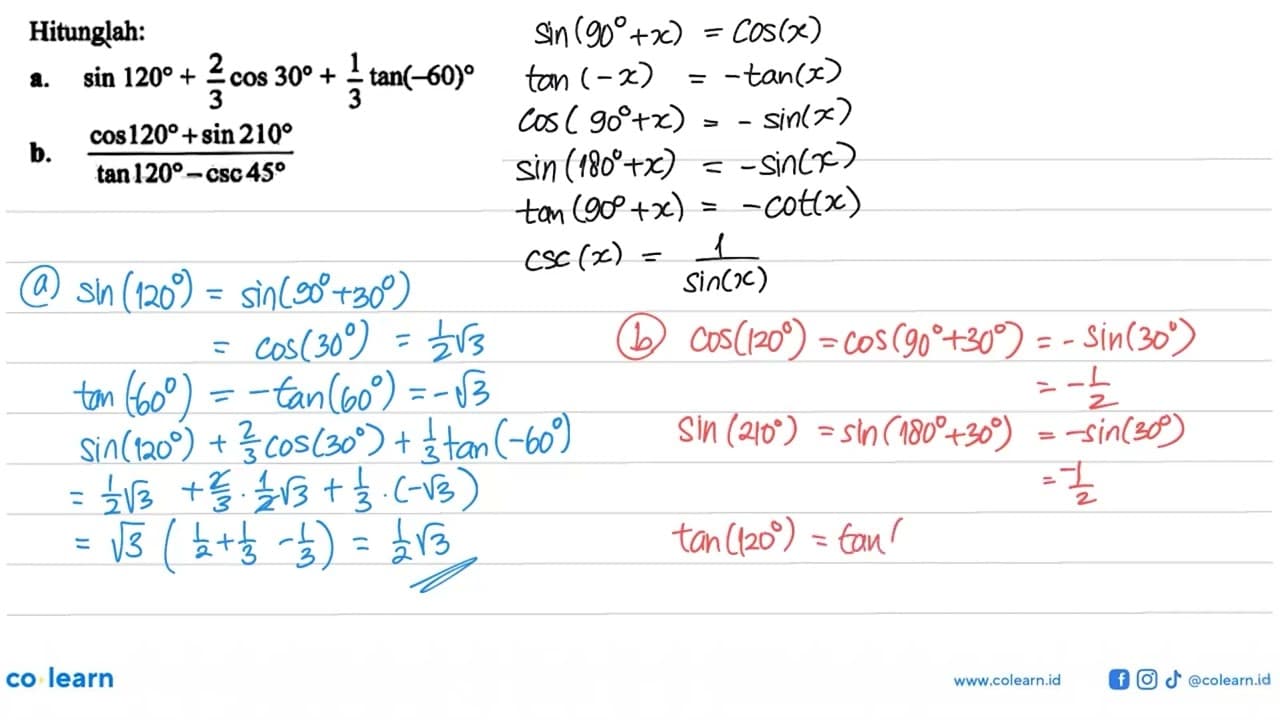 Hitunglah:
a. sin 120° + 2/3 cos 30° + 1/3 tan(–60)°
b. (cos 120° + sin 210°)/(tan 120° – csc 45°)
sin(90° + x) = cos(x)
tan(-x) = -tan(x)
cos(90° + x) = - sin(x)
sin(180° + x) = -sin(x)
tan(90° + x) = -cot(x)
csc(x) = 1/sin(x)
(a) sin(120°) = sin(90° + 30°)
= cos(30°) = 1/2 √3
tan(-60°) = -tan(60°) = -√3
sin(120°) + 2/3 cos(30°) + 1/3 tan(-60°)
= 1/2 √3 + 2/3 . 1/2 √3 + 1/3 . (-√3)
= √3 (1/2 + 1/3 - 1/3) = 1/2 √3
(b) cos(120°) = cos(90° + 30°) = - sin(30°)
= - 1/2
sin(210°) = sin(180° + 30°) = -sin(30°)
= -1/2
tan(120°) = tan(
co learn
www.colearn.id
@colearn.id